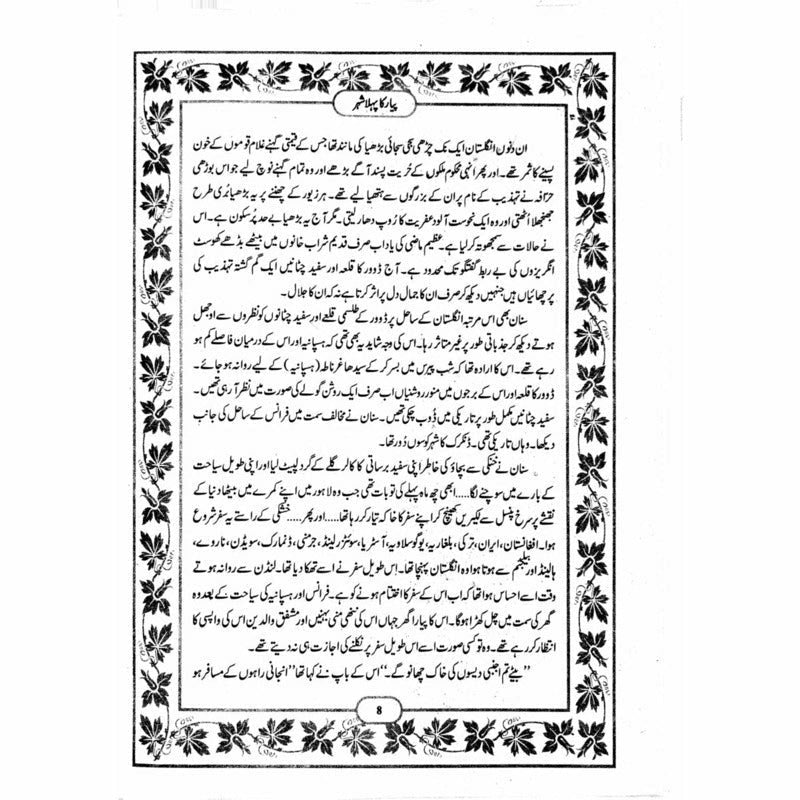 پیار کا پہلا شہر
ان دنوں انگلستان ایک نک چڑھی سجی سجائی بڑھیا کی مانند تھا جس کے قیمتی گہنے غلام قوموں کے خون
پسینے کا ثمر تھے۔ اور پھر انہی محکوم ملکوں کے حُریت پسند آگے بڑھے اور وہ تمام گہنے نوچ لیے جو اس بوڑھی
حرّافہ نے تہذیب کے نام پر ان کے بزرگوں سے ہتھیا لیے تھے۔ ہر زیور کے چھننے پر یہ بڑھیا بُری طرح
جھنجھلا اُٹھتی اور وہ ایک نحوست آلود عفریت کا رُوپ دھار لیتی۔ مگر آج یہ بڑھیا بے حد پُرسکون ہے۔ اس
نے حالات سے سمجھوتہ کر لیا ہے۔ عظیم ماضی کی یاد اب صرف قدیم شراب خانوں میں بیٹھے بڈھے کھوسٹ
انگریزوں کی بے ربط گفتگو تک محدود ہے۔ آج ڈوور کا قلعہ اور سفید چٹانیں ایک گم گشتہ تہذیب کی
پرچھائیاں ہیں جنہیں دیکھ کر صرف ان کا جمال دل پر اثر کرتا ہے نہ کہ ان کا جلال۔
سنان بھی اس مرتبہ انگلستان کے ساحل پر ڈوور کے طلسمی قلعے اور سفید چٹانوں کو نظروں سے اوجھل
ہوتے دیکھ کر جذباتی طور پر غیر متاثر رہا۔ اس کی وجہ شاید یہ بھی تھی کہ ہسپانیہ اور اس کے درمیان فاصلے کم ہو
رہے تھے۔ اس کا ارادہ تھا کہ شب پیرس میں بسر کر کے سیدھا غرناطہ (ہسپانیہ) کے لیے روانہ ہو جائے۔
ڈوور کا قلعہ اور اس کے برجوں میں منور روشنیاں اب صرف ایک روشن گولے کی صورت میں نظر آ رہی تھیں۔
سفید چٹانیں مکمل طور پر تاریکی میں ڈوب چکی تھیں۔ سنان نے مخالف سمت میں فرانس کے ساحل کی جانب
دیکھا۔ وہاں تاریکی تھی۔ ڈنکرک کا شہر کوسوں دُور تھا۔
سنان نے خنکی سے بچاؤ کی خاطر اپنی سفید برساتی کا کالر گلے کے گرد لپیٹ لیا اور اپنی طویل سیاحت
کے بارے میں سوچنے لگا..... ابھی چھ ماہ پہلے کی تو بات تھی جب وہ لاہور میں اپنے کمرے میں بیٹھا دنیا کے
نقشے پر سرخ پنسل سے لکیریں کھینچ کر اپنے سفر کا خاکہ تیار کر رہا تھا..... اور پھر..... خشکی کے راستے یہ سفر شروع
ہوا۔ افغانستان، ایران، ترکی، بلغاریہ، یوگوسلاویہ، آسٹریا، سوئٹزرلینڈ، جرمنی، ڈنمارک، سویڈن، ناروے،
ہالینڈ اور بیلجیم سے ہوتا ہوا وہ انگلستان پہنچا تھا۔ اِس طویل سفر نے اسے تھکا دیا تھا۔ لنڈن سے روانہ ہوتے
وقت اسے احساس ہوا تھا کہ اب اس کے سفر کا اختتام ہونے کو ہے۔ فرانس اور ہسپانیہ کی سیاحت کے بعد وہ
گھر کی سمت میں چل کھڑا ہوگا۔ اس کا پیارا گھر جہاں اس کی ننھی منی بہنیں اور مشفق والدین اس کی واپسی کا
انتظار کر رہے تھے۔ وہ تو کسی صورت اسے اس طویل سفر پر نکلنے کی اجازت ہی نہ دیتے تھے۔
”بیٹے تم اجنبی دیسوں کی خاک چھانو گے۔“ اس کے باپ نے کہا تھا ”انجانی راہوں کے مسافر ہو
8